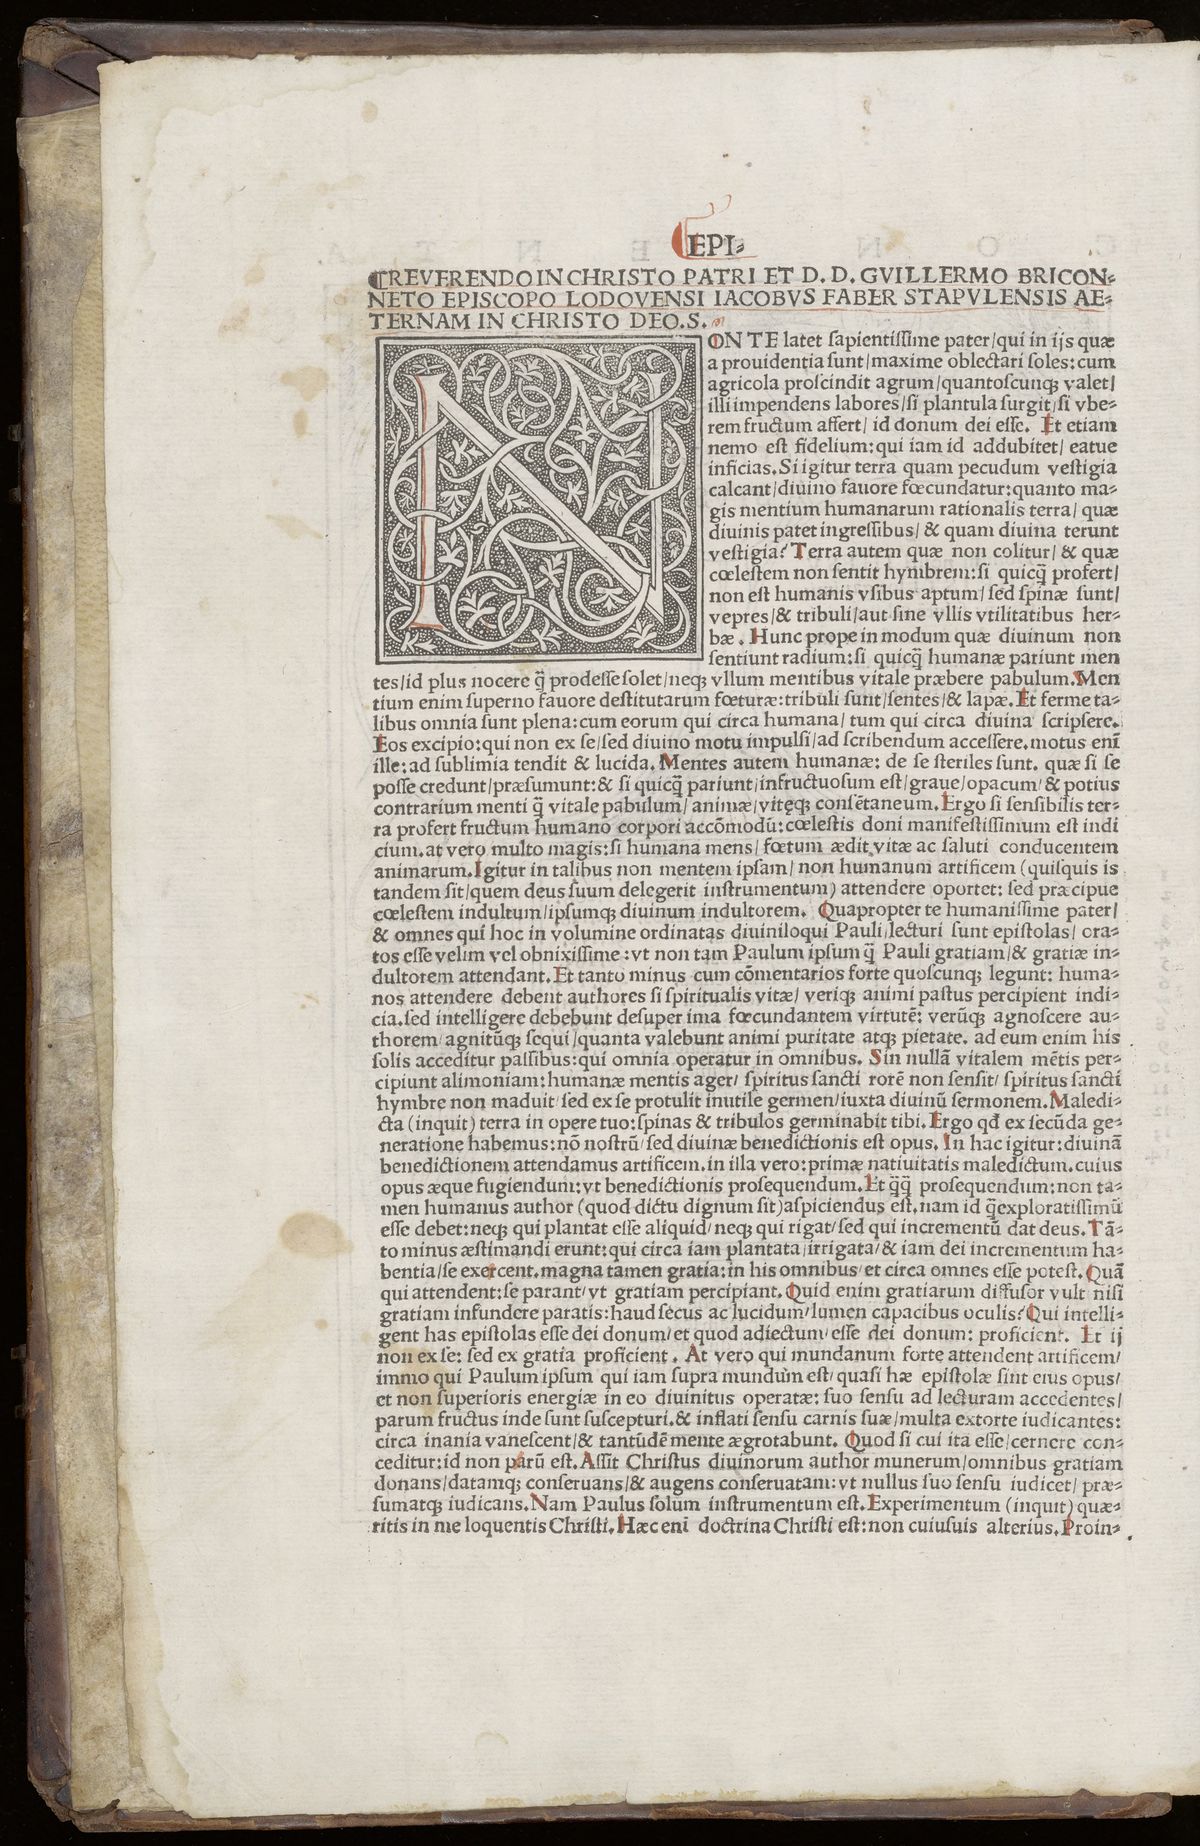 EPI⸗
⸿REVERENDO IN CHRISTO PATRI ET D. D. GVILLERMO BRICON⸗
NETO EPISCOPO LODOVENSI IACOBVS FABER STAPVLENSIS AE⸗
TERNAM IN CHRISTO DEO.S.
NON TE latet sapientissime pater/qui in ijs quæ
a prouidentia sunt/maxime oblectari soles:cum
agricola proscindit agrum/quantoscunqꝫ valet/
illi impendens labores/si plantula surgit/si vbe⸗
rem fructum affert/ id donum dei esse. Et etiam
nemo est fidelium:qui iam id addubitet/ eatue
inficias.Si igitur terra quam pecudum vestigia
calcant/diuino fauore fœcundatur:quanto ma⸗
gis mentium humanarum rationalis terra/ quæ
diuinis patet ingressibus/ & quam diuina terunt
vestigia? Terra autem quæ non colitur/ & quæ
cœlestem non sentit hymbrem:si quicq̃ profert/
non est humanis vsibus aptum/ sed spinæ sunt/
vepres/& tribuli/aut sine vllis vtilitatibus her⸗
bæ. Hunc prope in modum quæ diuinum non
sentiunt radium:si quicq̃ humanæ pariunt men
tes/id plus nocere q̃ prodesse solet/neqꝫ vllum mentibus vitale præbere pabulum.Men
tium enim superno fauore destitutarum fœturæ:tribuli sunt/sentes/& lapæ. Et ferme ta⸗
libus omnia sunt plena:cum eorum qui circa humana/ tum qui circa diuina scripsere.
Eos excipio:qui non ex se/sed diuino motu impulsi/ad scribendum accessere.motus enī
ille:ad sublimia tendit & lucida. Mentes autem humanæ: de se steriles sunt. quæ si se
posse credunt/præsumunt:& si quicq̃ pariunt/infructuosum est/graue/opacum/& potius
contrarium menti q̃ vitale pabulum/ animæ/vitęqꝫ consētaneum.Ergo si sensibilis ter⸗
ra profert fructum humano corpori accōmodū:cœlestis doni manifestissimum est indi
cium.at vero multo magis:si humana mens/ fœtum ædit vitæ ac saluti conducentem
animarum.Igitur in talibus non mentem ipsam/ non humanum artificem (quisquis is
tandem sit/quem deus suum delegerit instrumentum) attendere oportet: sed præcipue
cœlestem indultum/ipsumqꝫ diuinum indultorem. Quapropter te humanissime pater/
& omnes qui hoc in volumine ordinatas diuiniloqui Pauli/lecturi sunt epistolas/ ora⸗
tos esse velim vel obnixissime:vt non tam Paulum ipsum q̃ Pauli gratiam/& gratiæ in⸗
dultorem attendant. Et tanto minus cum cōmentarios forte quoscunqꝫ legunt: huma⸗
nos attendere debent authores si spiritualis vitæ/ veriqꝫ animi pastus percipient indi⸗
cia.sed intelligere debebunt desuper ima fœcundantem virtutē: verūqꝫ agnoscere au⸗
thorem/agnitūqꝫ sequi/quanta valebunt animi puritate atqꝫ pietate. ad eum enim his
solis acceditur passibus:qui omnia operatur in omnibus. Sin nullā vitalem mētis per⸗
cipiunt alimoniam:humanæ mentis ager/ spiritus sancti rorē non sensit/ spiritus sancti
hymbre non maduit/sed ex se protulit inutile germen/iuxta diuinū sermonem.Maledi⸗
cta (inquit) terra in opere tuo:spinas & tribulos germinabit tibi. Ergo qđ ex secūda ge⸗
neratione habemus:nō nostrū/sed diuinæ benedictionis est opus. In hac igitur:diuinā
benedictionem attendamus artificem.in illa vero:primæ natiuitatis maledictum.cuius
opus æque fugiendum:vt benedictionis prosequendum.Et q̃q̃ prosequendum:non ta⸗
men humanus author (quod dictu dignum sit) aspiciendus est.nam id q̃exploratissimū
esse debet:neqꝫ qui plantat esse aliquid/neqꝫ qui rigat/sed qui incrementū dat deus.Tā⸗
to minus æstimandi erunt:qui circa iam plantata/irrigata/& iam dei incrementum ha⸗
bentia/se exercent.magna tamen gratia:in his omnibus/et circa omnes esse potest.Quā
qui attendent:se parant/vt gratiam percipiant.Quid enim gratiarum diffusor vult nisi
gratiam infundere paratis:haud secus ac lucidum/lumen capacibus oculis?Qui intelli⸗
gent has epistolas esse dei donum/et quod adiectum/esse dei donum: proficient. Et ij
non ex se: sed ex gratia proficient. At vero qui mundanum forte attendent artificem/
immo qui Paulum ipsum qui iam supra mundum est/quasi hæ epistolæ sint eius opus/
et non superioris energiæ in eo diuinitus operatæ: suo sensu ad lecturam accedentes/
parum fructus inde sunt suscepturi.& inflati sensu carnis suæ/multa extorte iudicantes:
circa inania vanescent/& tantūdē mente ægrotabunt. Quod si cui ita esse/cernere con⸗
ceditur:id non parū est.Assit Christus diuinorum author munerum/omnibus gratiam
donans/datamqꝫ conseruans/& augens conseruatam:vt nullus suo sensu iudicet/ præ⸗
sumatqꝫ iudicans.Nam Paulus solum instrumentum est.Experimentum (inquit) quæ⸗
ritis in me loquentis Christi.Hæc enī doctrina Christi est:non cuiusuis alterius.Proin⸗